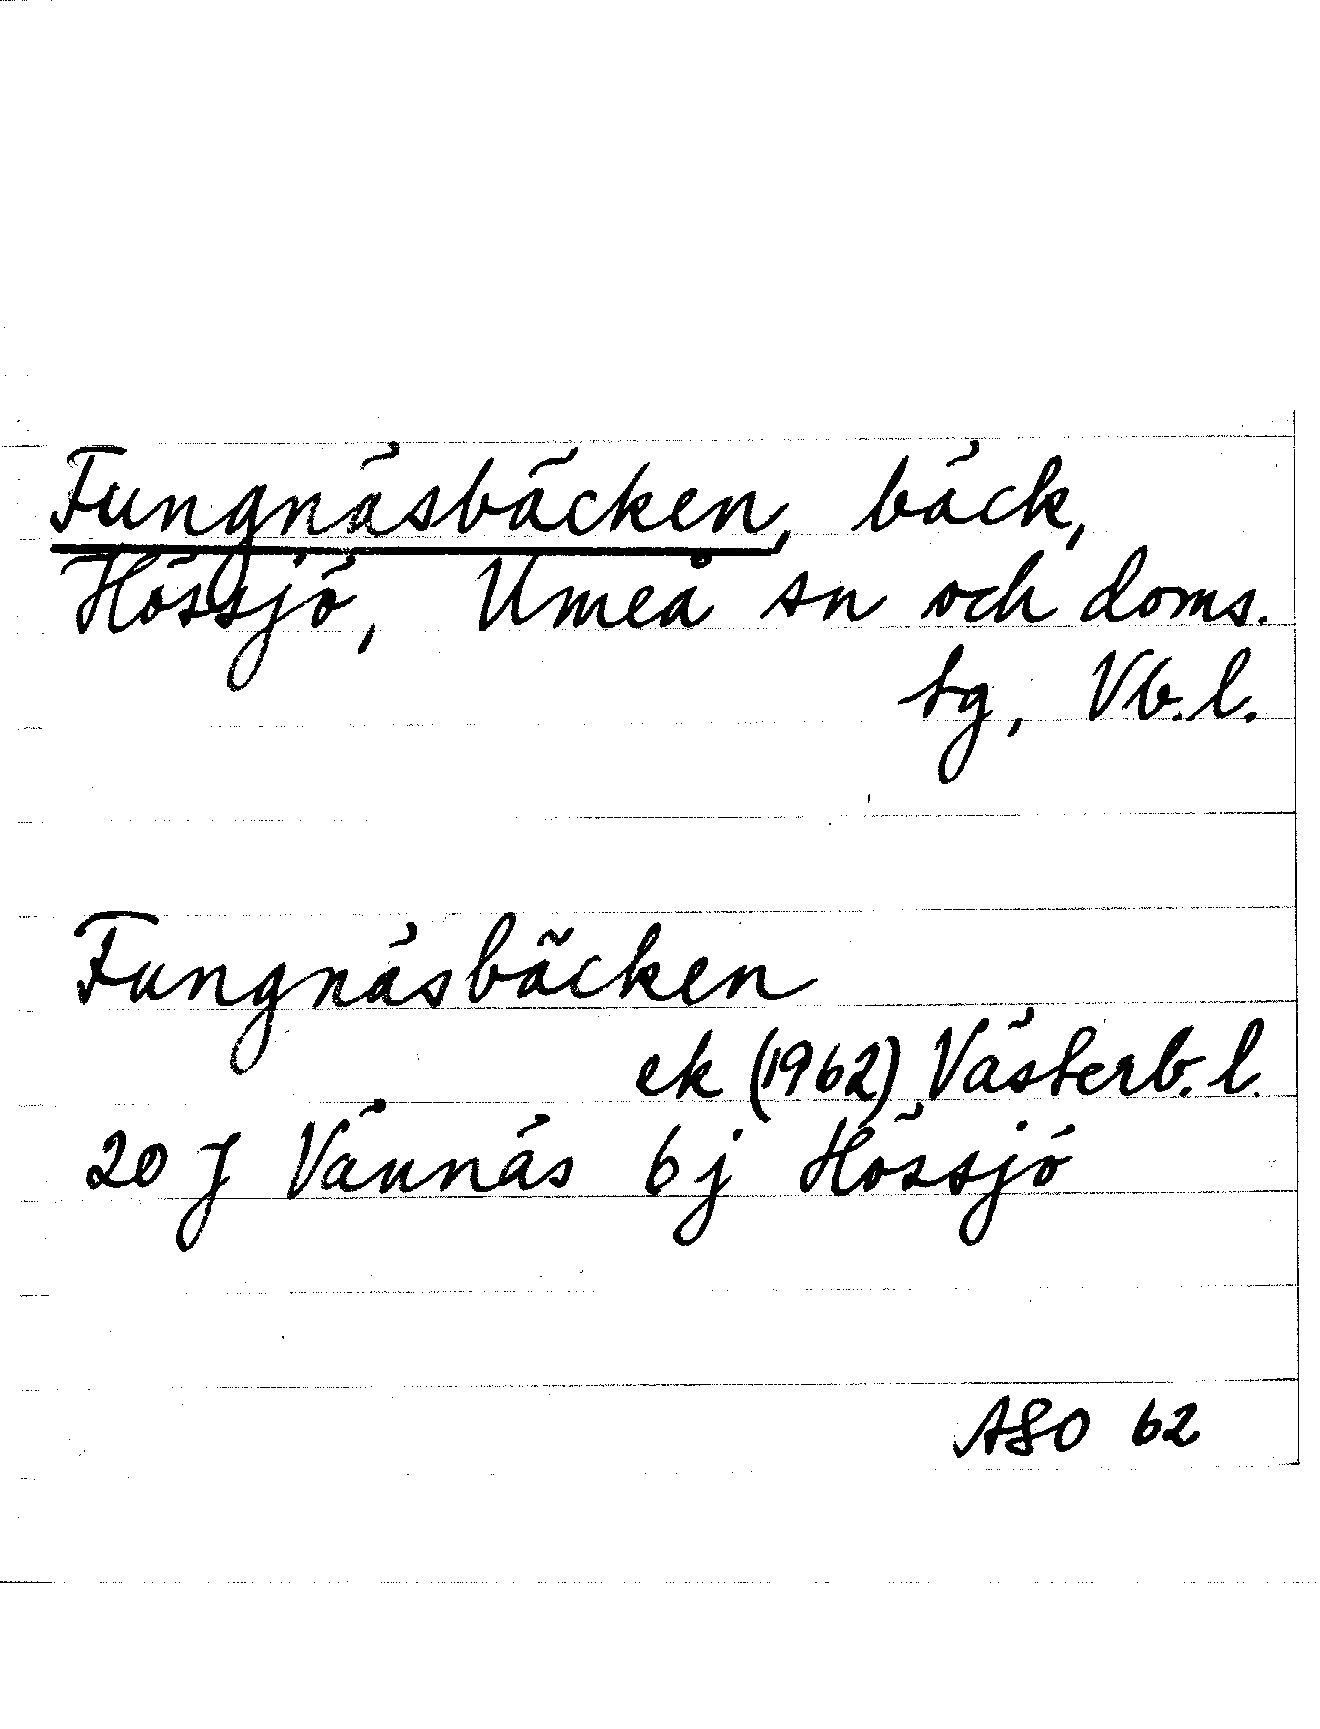 Fungnäsbäcken, bäck,
Hössjö, Umeå sn och doms.
tg, Vb.l.
Fungnäsbäcken
ek (1962) Västerb. l.
20 J Vännäs 6 j Hössjö
ASO 62